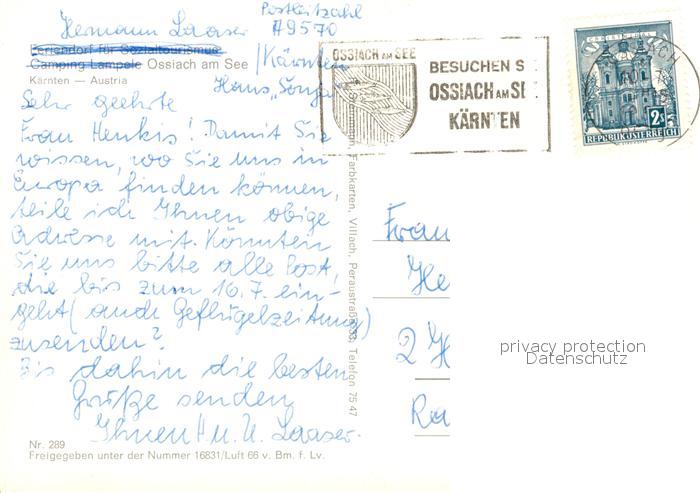 Postleitzahl
A 9570
Hermann Laaser
Feriendorf für Sozialtourismus
Camping Lampele Ossiach am See /Kärnten
Kärnten — Austria Haus „Sonja“
Sehr geehrte
Frau Henkis! Damit Sie
wissen, wo Sie uns in
Europa finden können,
teile ich Ihnen obige
Adresse mit. Könnten
Sie uns bitte alle Post,
die bis zum 16.7. ein-
geht (auch Geflügelzeitung)
zusenden?
Bis dahin die besten
Grüße senden
Ihnen H. u. U. Laaser.
Nr. 289
Freigegeben unter der Nummer 16831/Luft 66 v. Bm. f. Lv.
Farbkarten, Villach, Peraustraße 33, Telefon 75 47
OSSIACH AM SEE
BESUCHEN S
OSSIACH AM SE
KÄRNTEN
2S
REPUBLIK ÖSTERREICH
Frau
He
2 H
Ra
privacy protection
Datenschutz